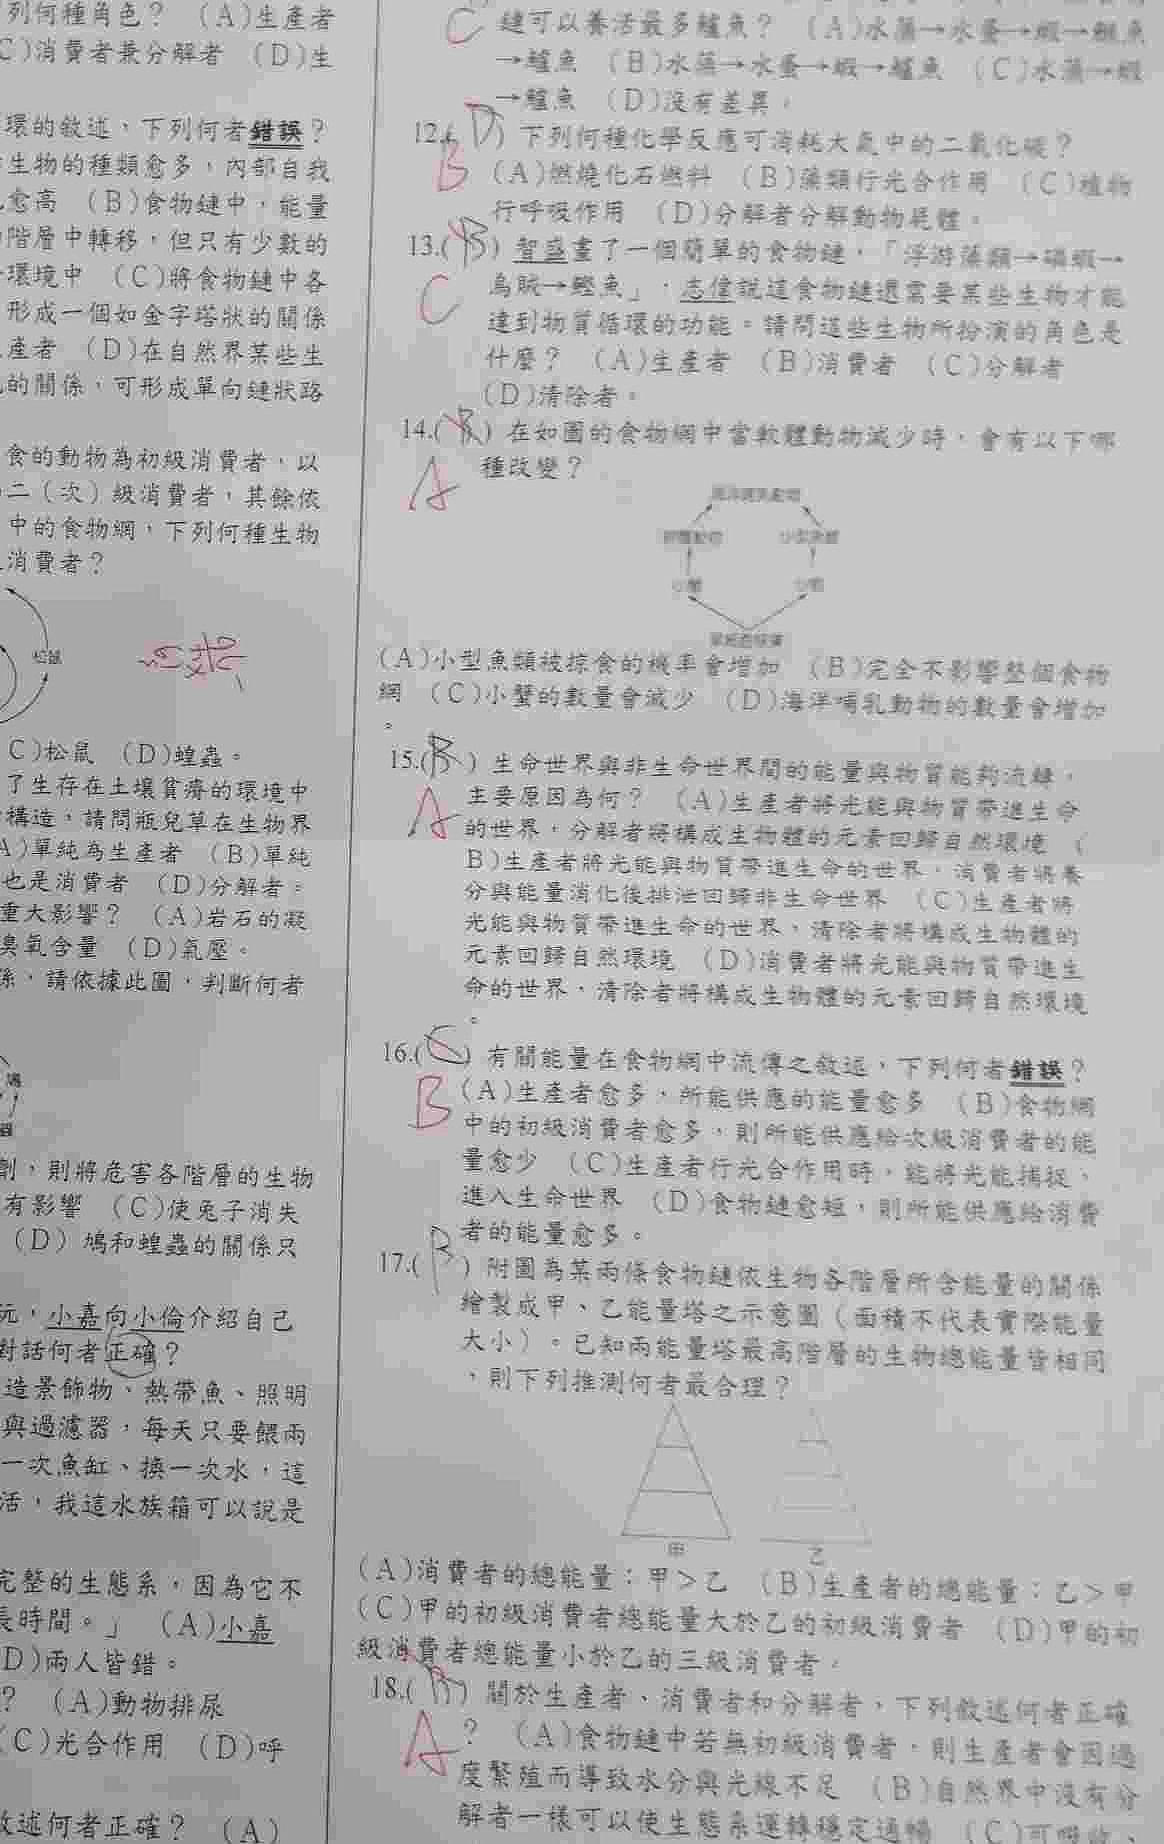 列何種角色？ (A)生產者
C)消費者兼分解者 (D)生
環的敘述，下列何者錯誤？
生物的種類愈多，內部自我
愈高 (B)食物鏈中，能量
階層中轉移，但只有少數的
環境中 (C)將食物鏈中各
形成一個如金字塔狀的關係
產者 (D)在自然界某些生
的關係，可形成單向鏈狀路
食的動物為初級消費者，以
二（次）級消費者，其餘依
中的食物網，下列何種生物
消費者？
松鼠
C)松鼠 (D)蝗蟲。
了生存在土壤貧瘠的環境中
構造，請問瓶兒草在生物界
A)單純為生產者 (B)單純
也是消費者 (D)分解者。
重大影響？ (A)岩石的凝
臭氧含量 (D)氣壓。
係，請依據此圖，判斷何者
鳩
劑，則將危害各階層的生物
有影響 (C)使兔子消失
(D) 鳩和蝗蟲的關係只
玩，小嘉向小倫介紹自己
對話何者正確？
造景飾物、熱帶魚、照明
與過濾器，每天只要餵兩
一次魚缸、換一次水，這
活，我這水族箱可以說是
完整的生態系，因為它不
長時間。」 (A)小嘉
D)兩人皆錯。
？ (A)動物排尿
(C)光合作用 (D)呼
敘述何者正確？ (A)
C 鏈可以養活最多鱸魚？ (A)水藻→水蚤→蝦→鯉魚
→鱸魚 (B)水藻→水蚤→蝦→鱸魚 (C)水藻→蝦
→鱸魚 (D)沒有差異。
12.( D ) 下列何種化學反應可消耗大氣中的二氧化碳？
B (A)燃燒化石燃料 (B)藻類行光合作用 (C)植物
行呼吸作用 (D)分解者分解動物屍體。
13.( B ) 智盛畫了一個簡單的食物鏈，「浮游藻類→磷蝦→
C 烏賊→鰹魚」，志偉說這食物鏈還需要某些生物才能
達到物質循環的功能。請問這些生物所扮演的角色是
什麼？ (A)生產者 (B)消費者 (C)分解者
(D)清除者。
14.( B ) 在如圖的食物網中當軟體動物減少時，會有以下哪
A 種改變？
海洋哺乳動物
軟體動物 小型魚類
小蟹 小蝦
(A)小型魚類被掠食的機率會增加 (B)完全不影響整個食物
網 (C)小蟹的數量會減少 (D)海洋哺乳動物的數量會增加
。
15.( B ) 生命世界與非生命世界間的能量與物質能夠流轉，
A 主要原因為何？ (A)生產者將光能與物質帶進生命
的世界，分解者將構成生物體的元素回歸自然環境 (
B)生產者將光能與物質帶進生命的世界，消費者將養
分與能量消化後排泄回歸非生命世界 (C)生產者將
光能與物質帶進生命的世界，清除者將構成生物體的
元素回歸自然環境 (D)消費者將光能與物質帶進生
命的世界，清除者將構成生物體的元素回歸自然環境
。
16.( C ) 有關能量在食物網中流傳之敘述，下列何者錯誤？
B (A)生產者愈多，所能供應的能量愈多 (B)食物網
中的初級消費者愈多，則所能供應給次級消費者的能
量愈少 (C)生產者行光合作用時，能將光能捕捉、
進入生命世界 (D)食物鏈愈短，則所能供應給消費
者的能量愈多。
17.( B ) 附圖為某兩條食物鏈依生物各階層所含能量的關係
繪製成甲、乙能量塔之示意圖（面積不代表實際能量
大小）。已知兩能量塔最高階層的生物總能量皆相同
，則下列推測何者最合理？
甲 乙
(A)消費者的總能量：甲＞乙 (B)生產者的總能量：乙＞甲
(C)甲的初級消費者總能量大於乙的初級消費者 (D)甲的初
級消費者總能量小於乙的三級消費者。
18.( B ) 關於生產者、消費者和分解者，下列敘述何者正確
A ？ (A)食物鏈中若無初級消費者，則生產者會因過
度繁殖而導致水分與光線不足 (B)自然界中沒有分
解者一樣可以使生態系運轉穩定通暢